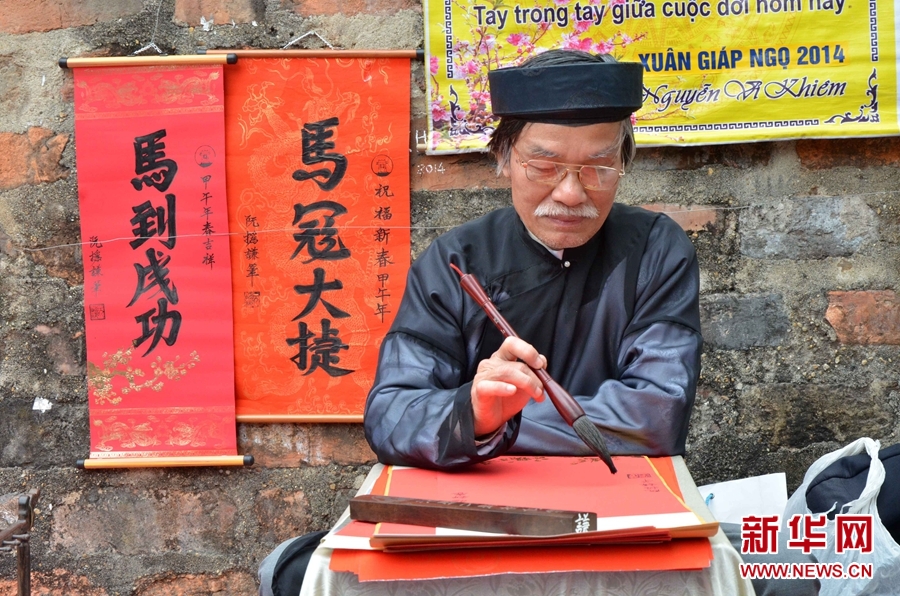 Tay trong tay giữa cuộc đời hôm nay
XUÂN GIÁP NGỌ 2014
Nguyễn Vi Khiêm
甲午年春吉祥
馬到成功
祝福新春甲午年
馬冠大捷
新华网
WWW.NEWS.CN